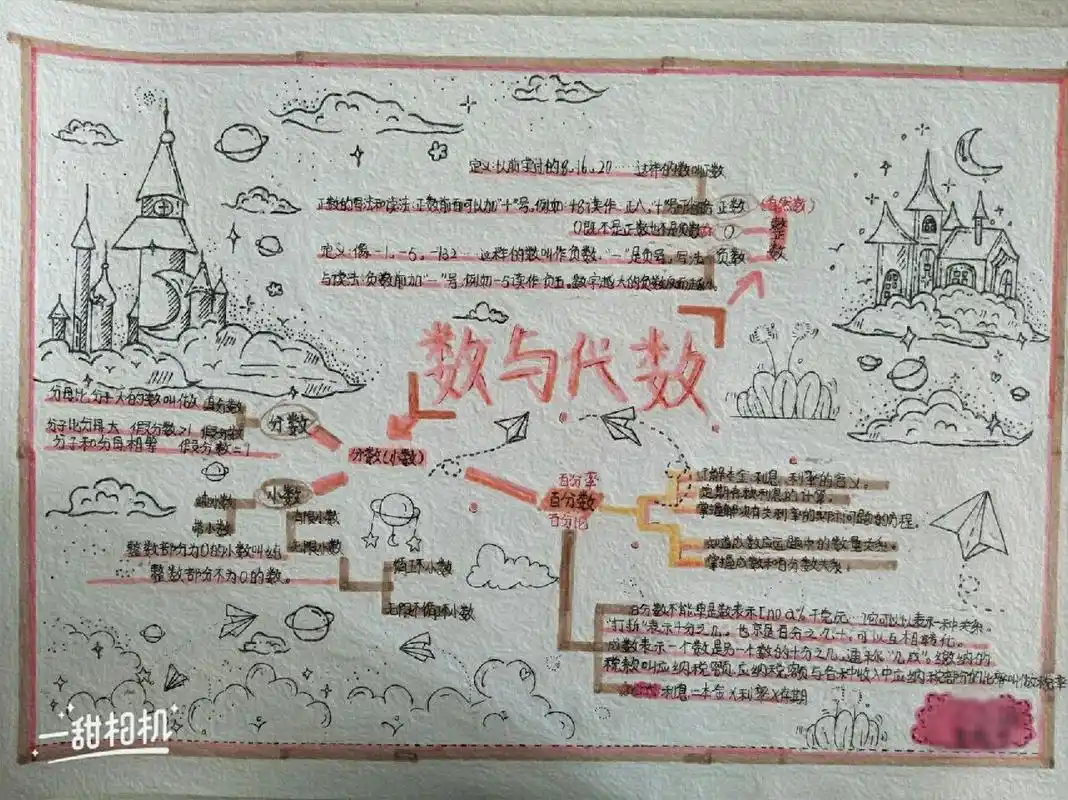 定义:以前学过的8、16、20……这样的数叫正数
正数的写法和读法:正数前面可以加“+”号,例如:+8读作 正八,“+”号可省略
正数
(自然数)
0既不是正数也不是负数
0
整数
定义:像-1、-5、-132……这样的数叫作负数。“-”是负号,写法
负数
与读法:负数前加“-”号,例如-5读作负五。数字越大的负数反而越小
数与代数
分母比分子大的数叫做 真分数
分子比分母大 假分数>1 假分数
分子和分母相等 假分数=1
分数
分数(小数)
小数
纯小数
带小数
有限小数
无限小数
整数部分为0的小数叫纯
整数部分不为0的数。
循环小数
无限不循环小数
百分率
百分数
百分比
了解本金、利息、利率的含义。
定期存款利息的计算。
掌握解决有关利率的实际问题的方程。
知道成数应运题中的数量关系。
掌握成数和百分数关系。
百分数不能单是数表示
可以表示一种关系。
“打折”表示十分之几,也就是百分之几十,可以互相转化。
成数表示一个数是另一个数的十分之几,通称“几成”,缴纳的
税款叫应纳税额,应纳税额与各种收入中应纳税部分的比率叫做税率
利息=本金×利率×存期
一甜相机